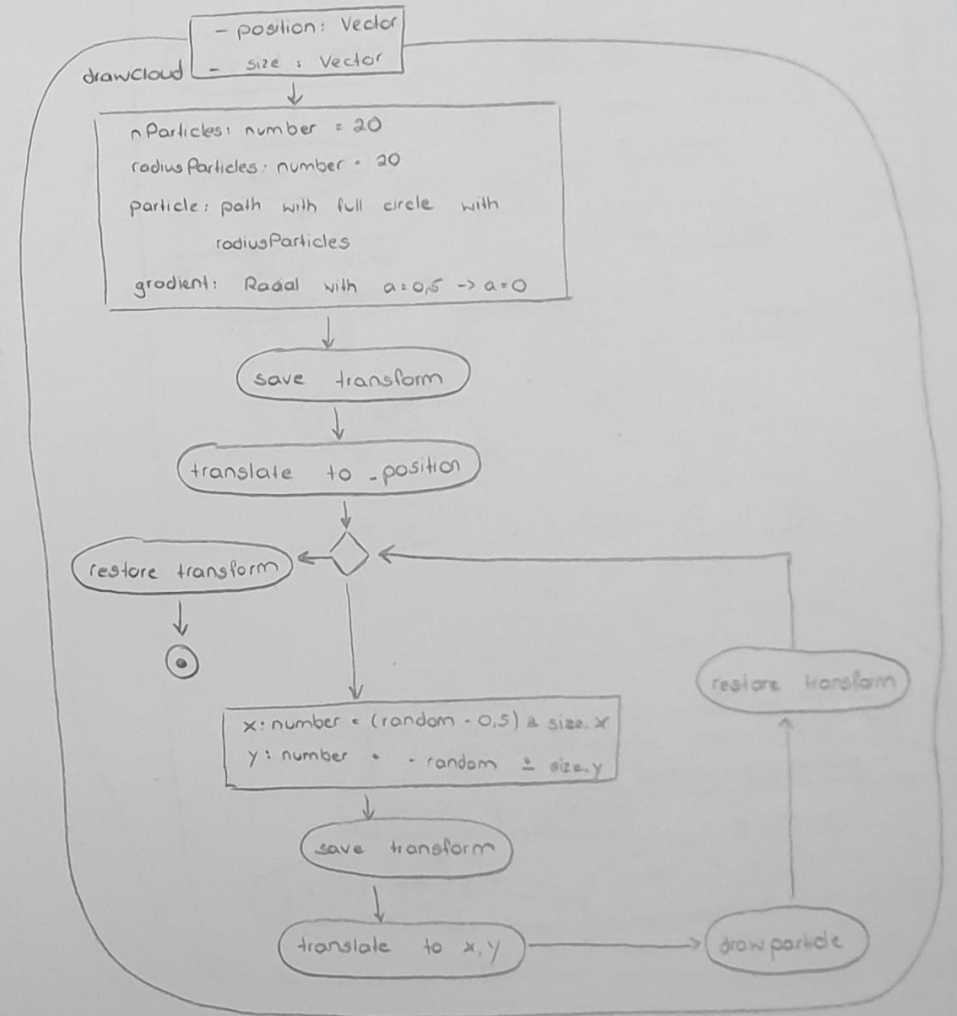 - position: Vector
- size : Vector
drawCloud
nParticles: number = 20
radiusParticles: number = 20
particle: path with full circle with
radiusParticles
gradient: Radial with a=0,5 -> a=0
save transform
translate to _position
restore transform
restore transform
x: number = (random - 0,5) * size.x
y: number = - random * size.y
save transform
translate to x,y
draw particle